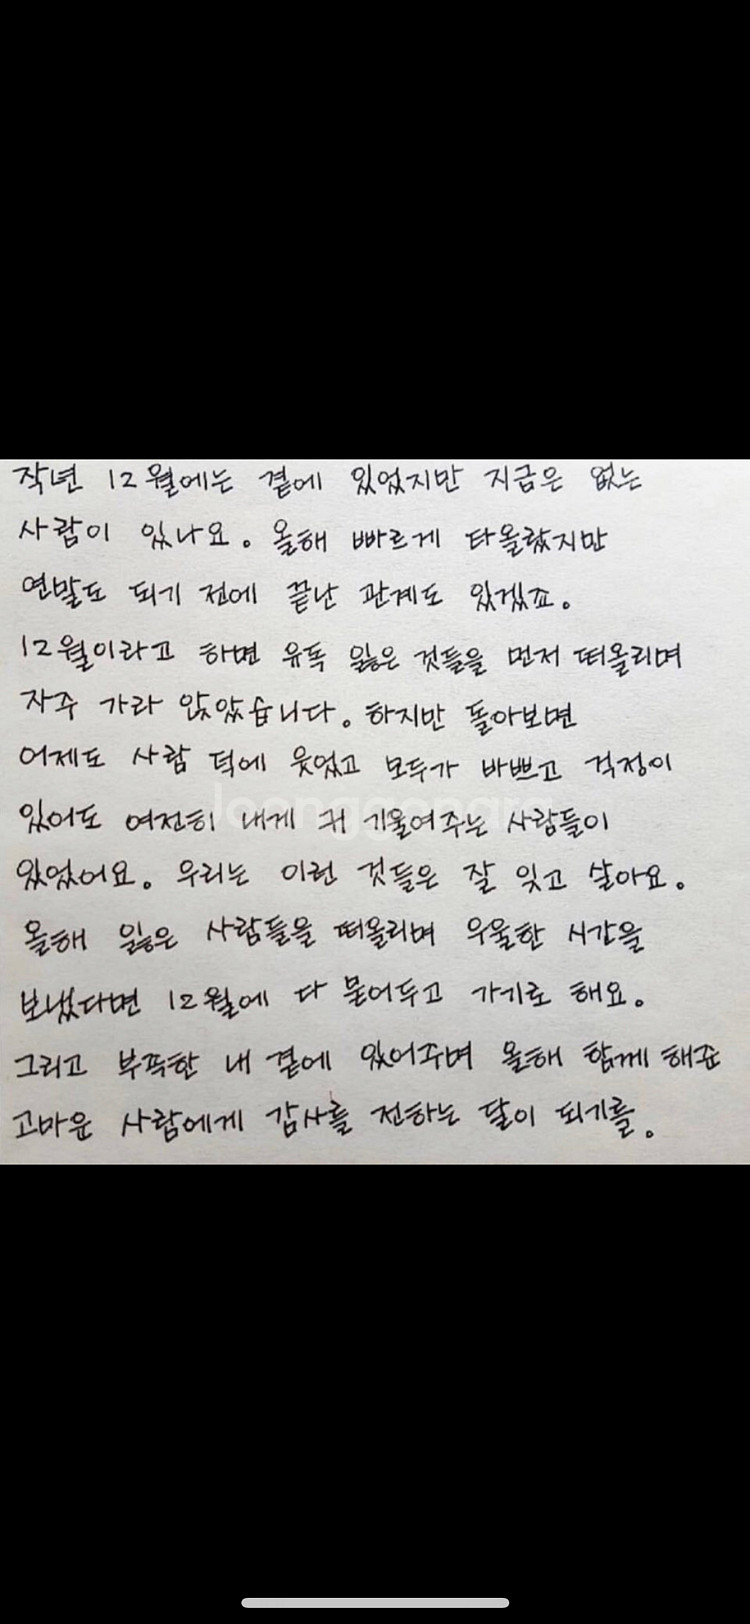 작년 12월에는 곁에 있었지만 지금은 없는
사람이 있나요. 올해 빠르게 타올랐지만
연말도 되기 전에 끝난 관계도 있겠죠.
12월이라고 하면 유독 잃은 것들을 먼저 떠올리며
자주 가라 앉았습니다. 하지만 돌아보면
어제도 사람 덕에 웃었고 모두가 바쁘고 걱정이
있어도 여전히 내게 귀 기울여주는 사람들이
있었어요. 우리는 이런 것들은 잘 잊고 살아요.
올해 잃은 사람들을 떠올리며 우울한 시간을
보냈다면 12월에 다 묻어두고 가기로 해요.
그리고 부족한 내 곁에 있어주며 올해 함께 해준
고마운 사람에게 감사를 전하는 달이 되기를.